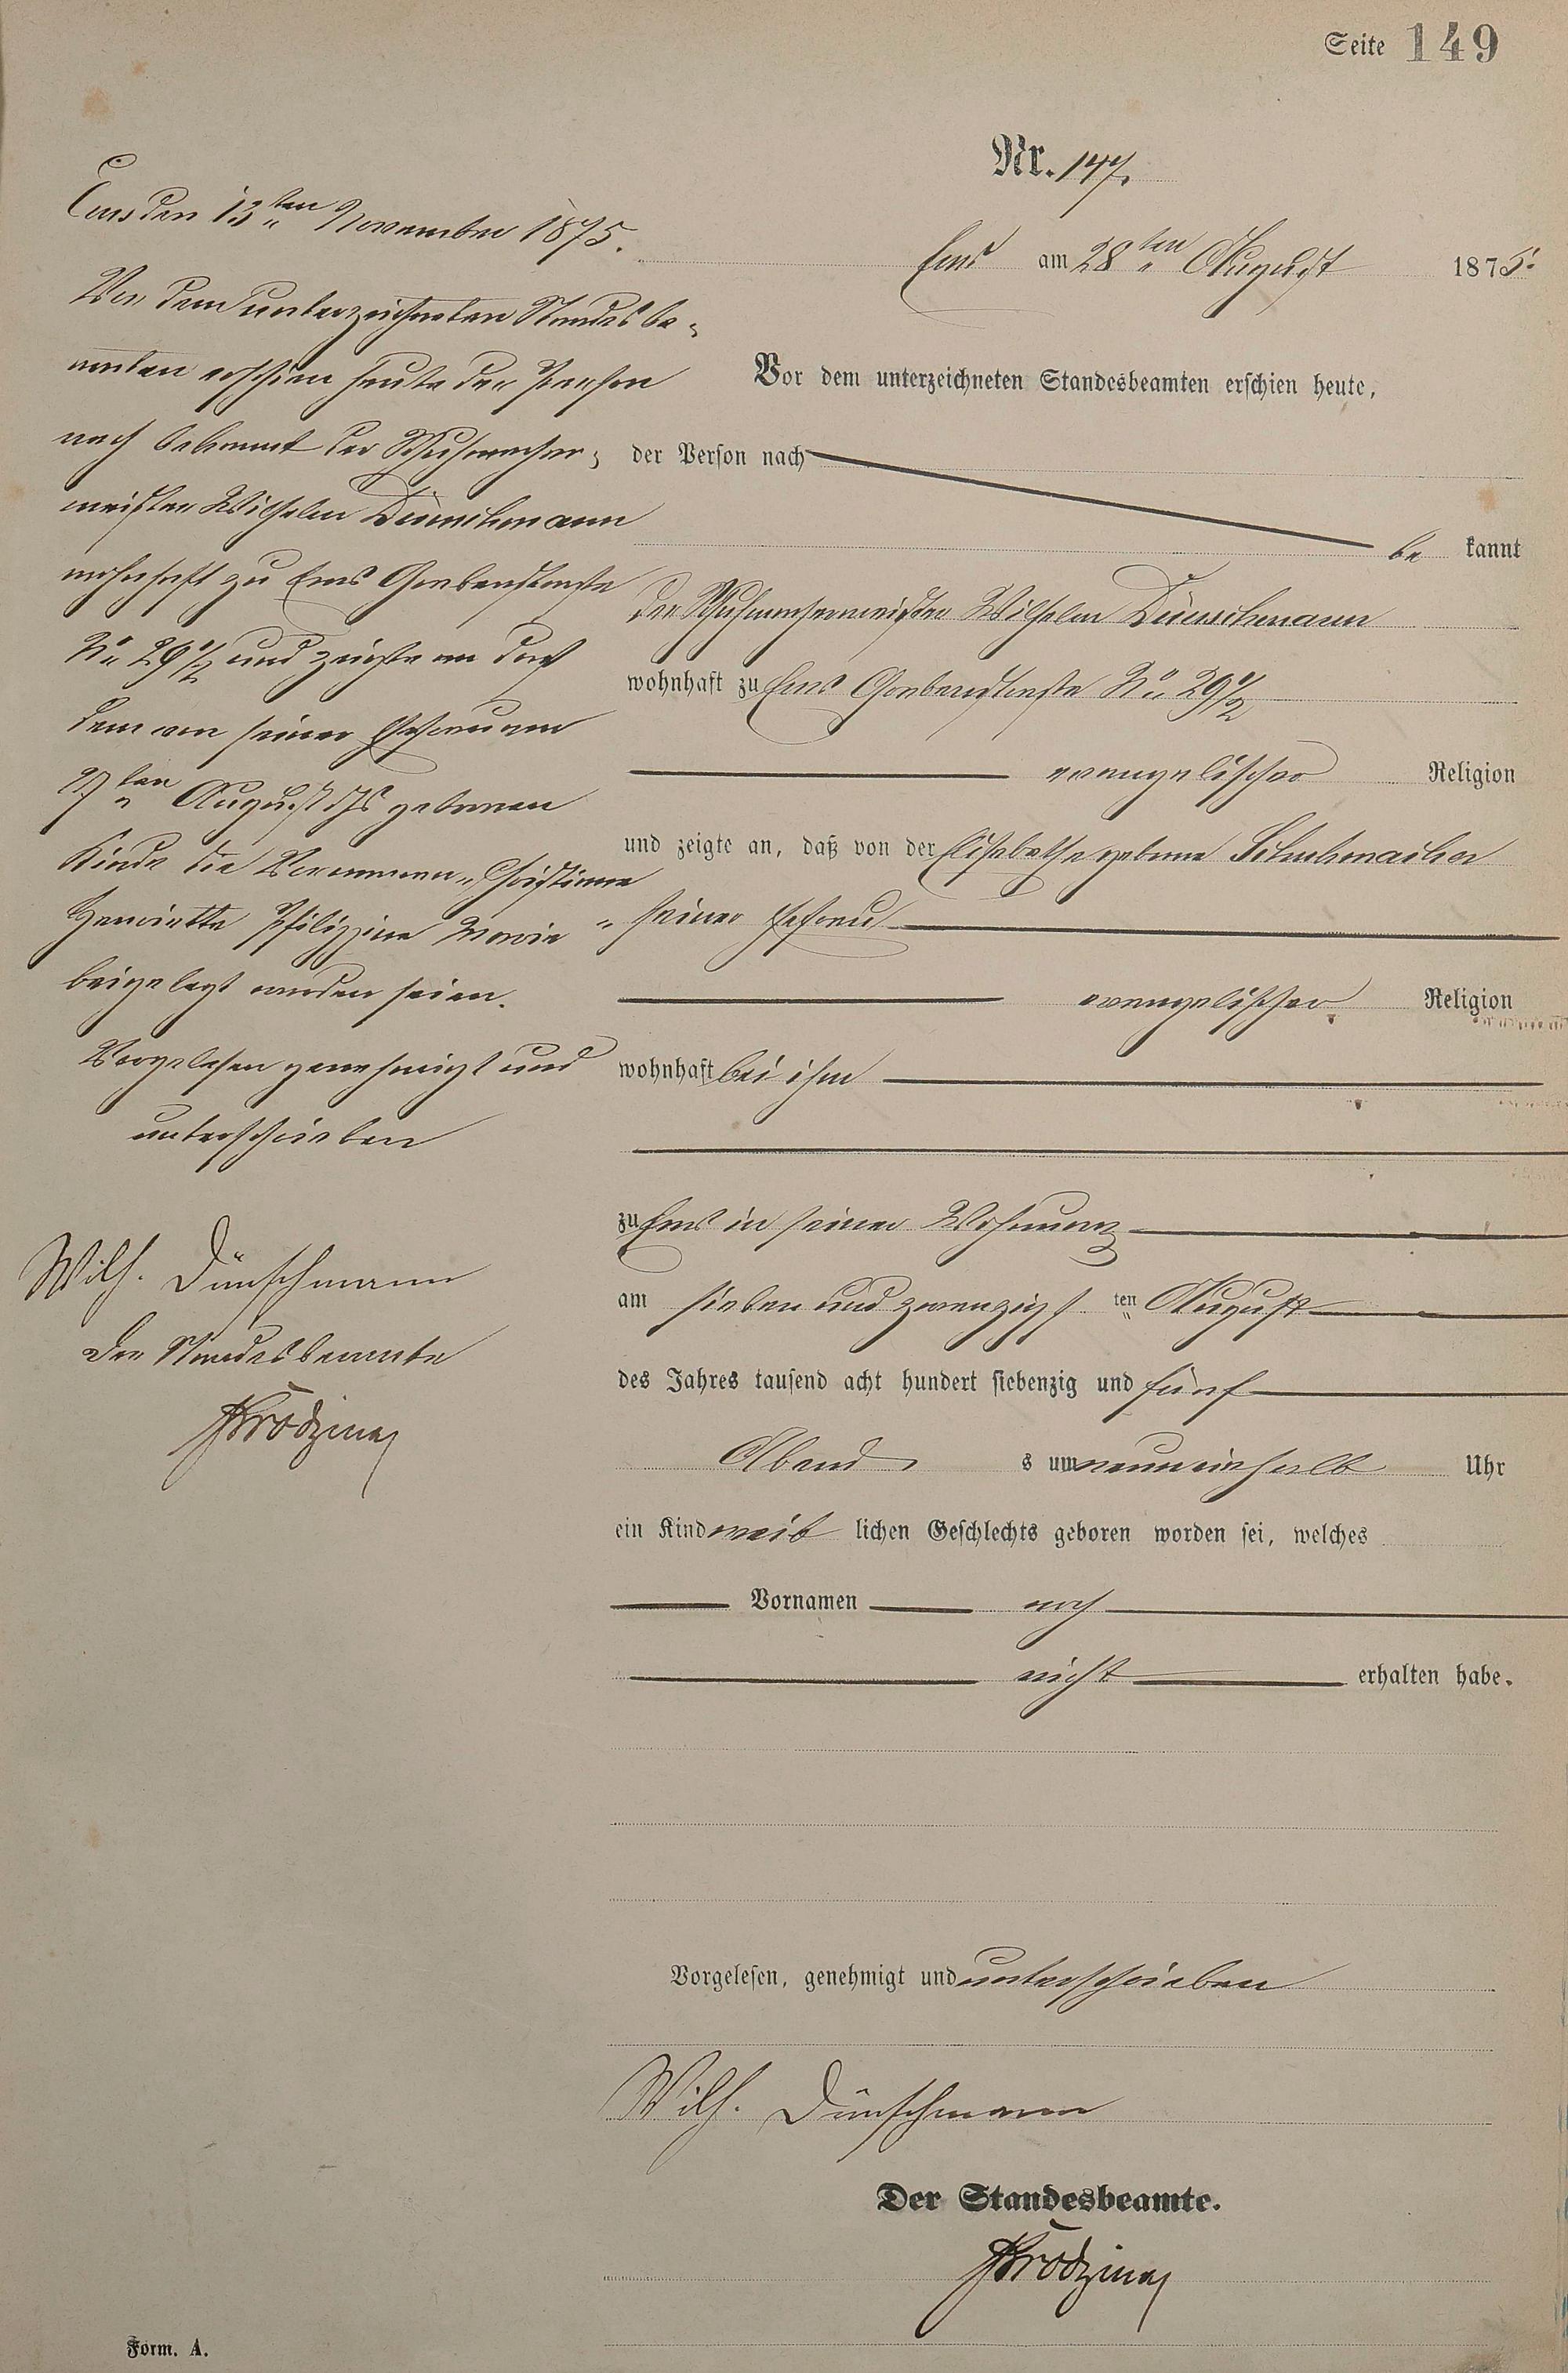 Seite 149
Nr. 147.
Ems am 28ten August 1875.
Vor dem unterzeichneten Standesbeamten erschien heute,
der Person nach
be kannt
der Schuhmachermeister Wilhelm Dünschmann
wohnhaft zu Ems Grabenstraße No 29 1/2
evangelischer Religion
und zeigte an, daß von der Elisabethe geborne Schuhmacher
seiner Ehefrau
evangelischer Religion
wohnhaft bei ihm
zu Ems in seiner Wohnung
am sieben und zwanzigsten August
des Jahres tausend acht hundert siebenzig und fünf
Abends um neuneinhalb Uhr
ein Kind weiblichen Geschlechts geboren worden sei, welches
Vornamen noch
nicht erhalten habe.
Vorgelesen, genehmigt und unterschrieben
Wilh. Dünschmann
Der Standesbeamte.
Ems den 13ten November 1875.
Vor dem unterzeichneten Standesbe-
amten erschien heute der Person
nach bekannt der Schuhmacher-
meister Wilhelm Dünschmann
wohnhaft zu Ems Grabenstraße
No 29 1/2 und zeigte an daß
dem von seiner Ehefrau am
27ten August ds Js gebornen
Kinde die Vornamen „Christiane
Henriette Philippine Marie“
beigelegt worden seien.
Vorgelesen genehmigt und
unterschrieben
Wilh. Dünschmann
Der Standesbeamte
Form. A.